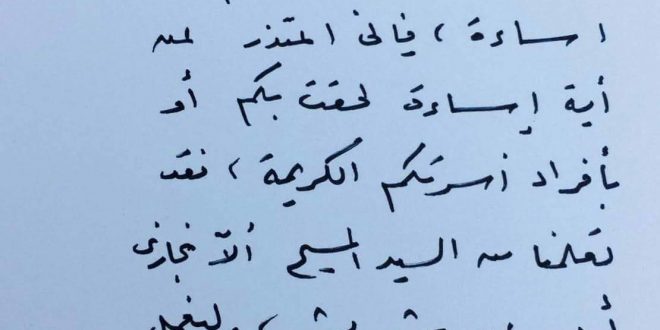 اساءة ، فإني اعتذر لهم
أية إساءة لحقت بكم أو
بأفراد أسرتكم الكريمة ، فقد
تعلمنا من السيد المسيح ألاّ نجازي